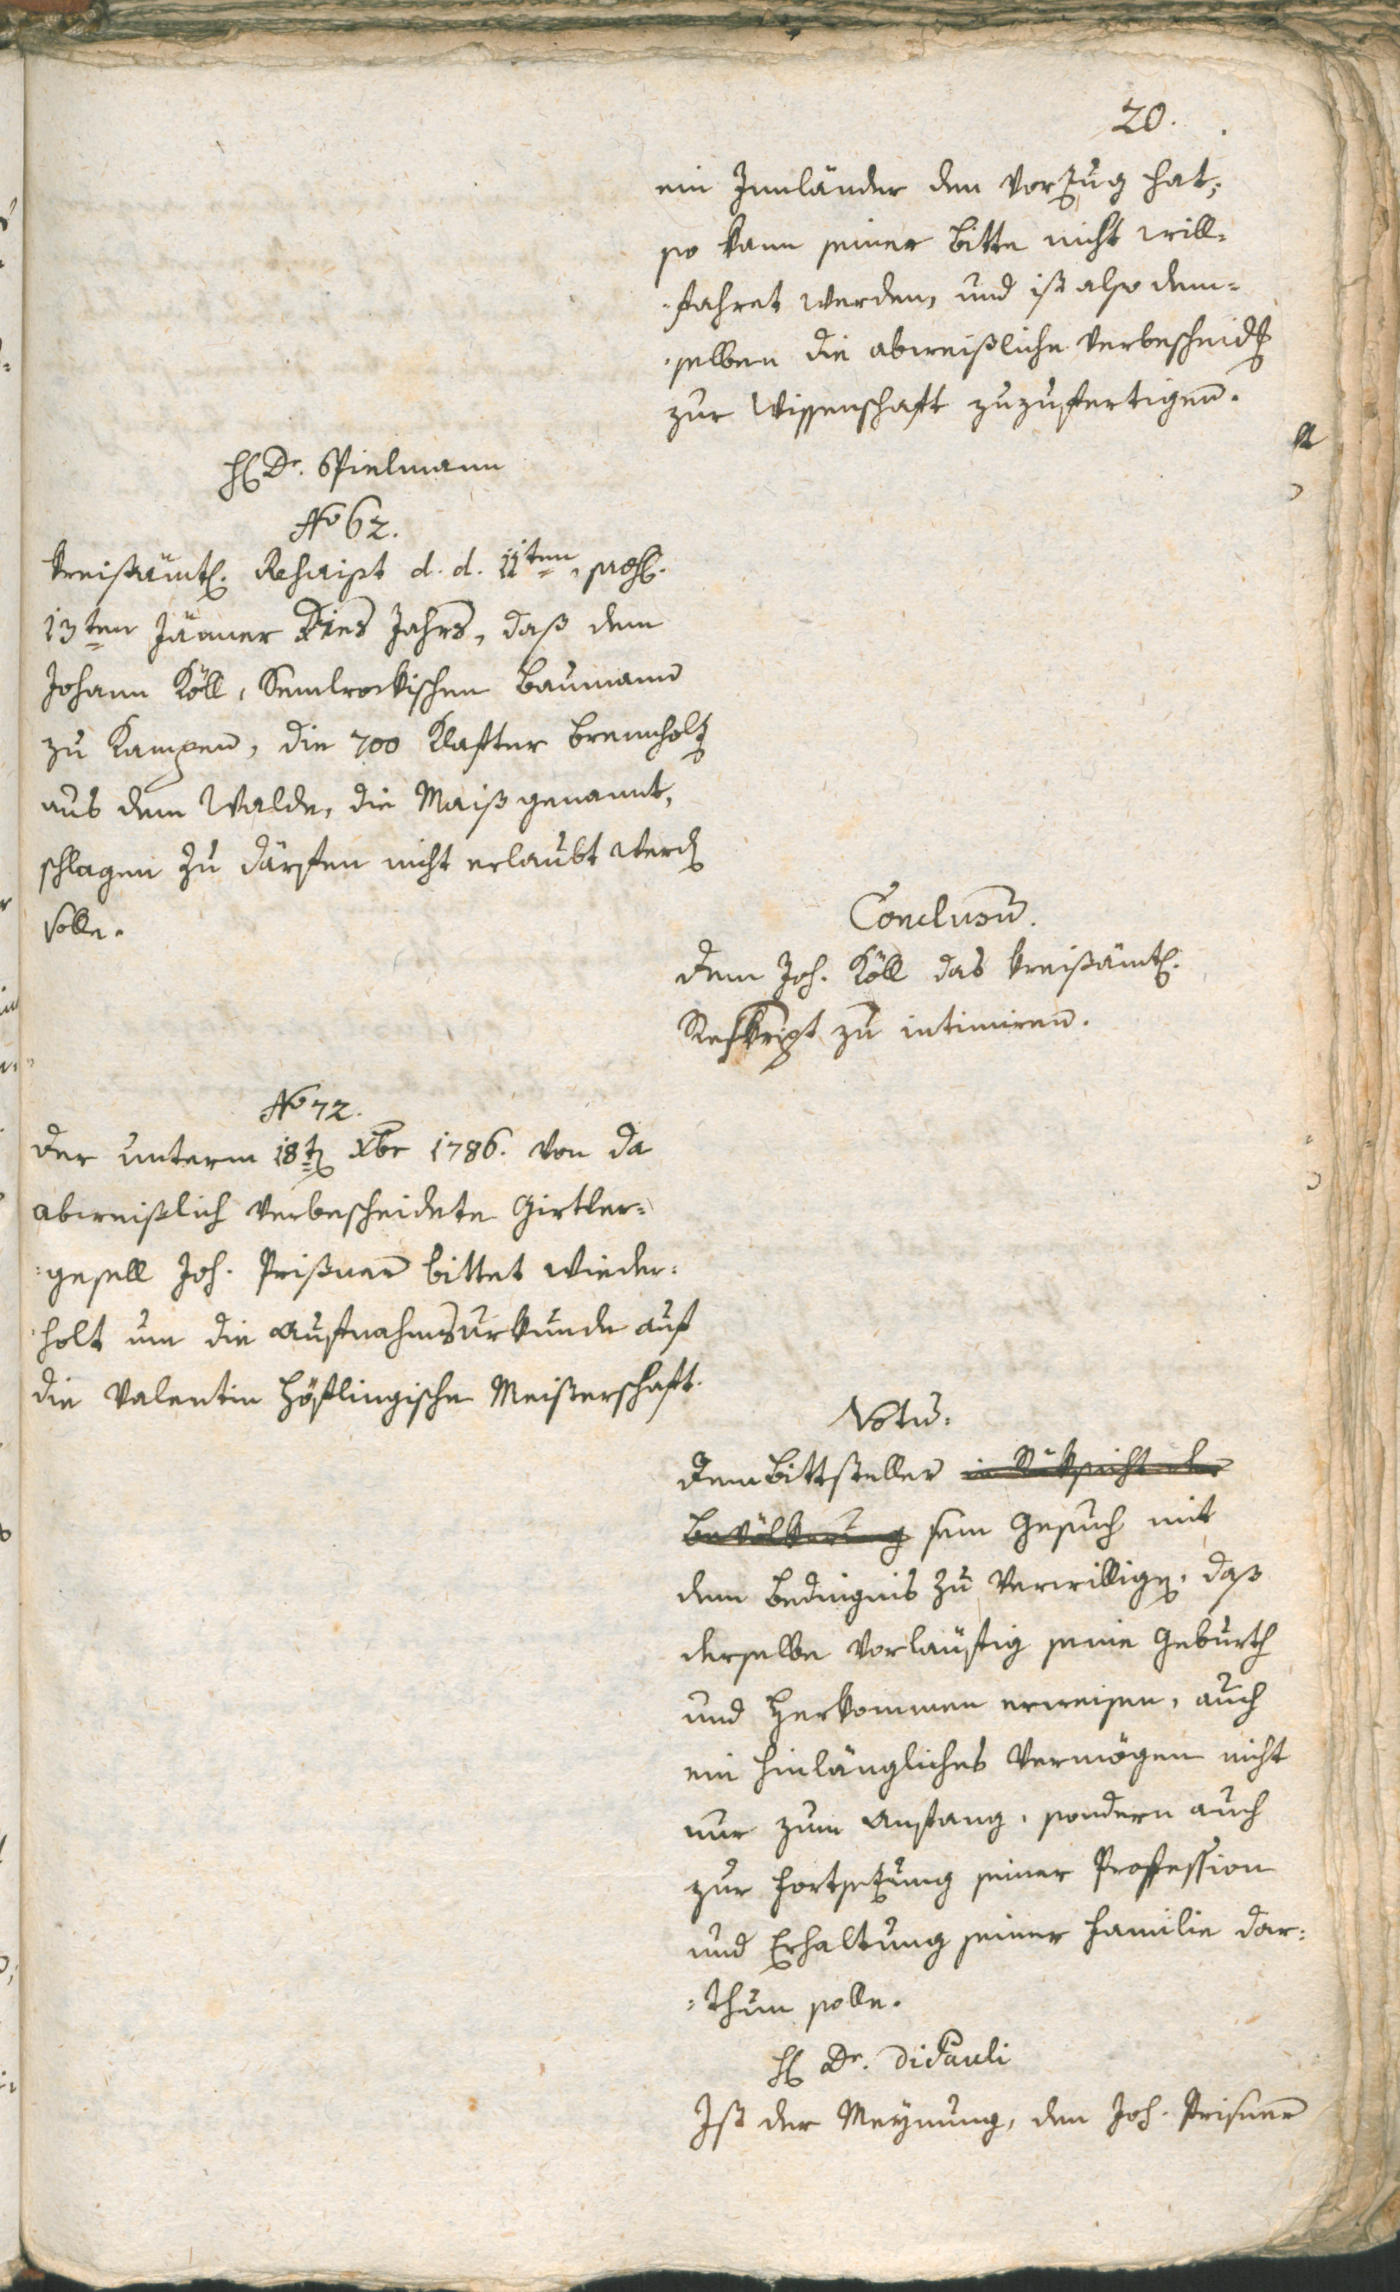 20.
ein Innländer den Vorzug hat,
so kann seiner Bitte nicht will-
-fahret werden, und ist also dem-
-selben die abweisliche Verbescheidg
zur Wissenschaft zuzufertigen.
H Dr. Spielmann
No 62.
Kreisämtl. Reskript d. d. 11ten, praes.
13ten Jänner dies Jahrs, daß dem
Johann Köll, Baumann
zu Kampen, die 700 Klafter Brennholz
aus dem Walde, die Maiß genannt,
schlagen zu därfen nicht erlaubt werdn
solle.
Conclusū.
Dem Joh. Köll das kreisämtl.
Reskript zu intimiren.
No 72.
Der unterm 18tn Xbr 1786. von da
abweislich verbescheidete Girtler-
-gesell Joh. Prißner bittet wieder-
holt um die Aufnahmsurkunde auf
die Valentin Höstlingische Meisterschaft.
Votū.
Dem Bittsteller in Rüksicht der
Bevölkerung sein Gesuch mit
dem Bedingnis zu verwillign, daß
derselbe vorläufig seine Geburth
und Herkommen erweisen, auch
ein hinlängliches Vermögen nicht
nur zum Anfang, sondern auch
zur Fortsezung seiner Profession
und Erhaltung seiner Familie dar-
-thun solle.
H Dr. DiPauli
Ist der Meynung, dem Joh. Prisner